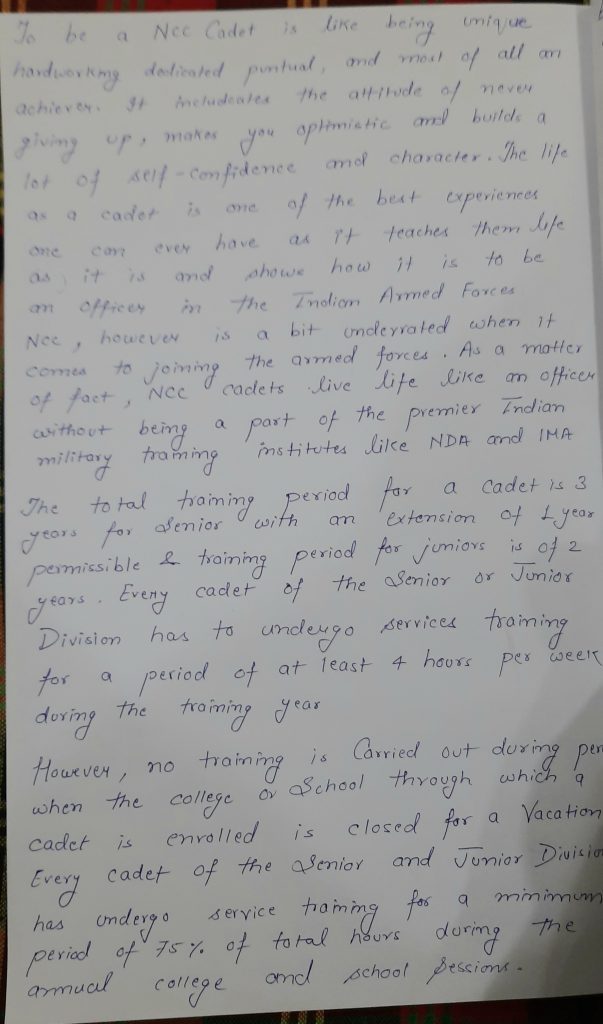 To be a NCC Cadet is like being unique
hardworking dedicated puntual, and most of all an
achiever. It includcates the attitude of never
giving up, makes you optimistic and builds a
lot of self-confidence and character. The life
as a cadet is one of the best experiences
one can ever have as it teaches them life
as it is and shows how it is to be
an officer in the Indian Armed Forces
NCC, however is a bit underrated when it
comes to joining the armed forces. As a matter
of fact, NCC cadets live life like an officer
without being a part of the premier Indian
military training institutes like NDA and IMA
The total training period for a cadet is 3
years for Senior with an extension of 1 year
permissible & training period for juniors is of 2
years. Every cadet of the Senior or Junior
Division has to undergo services training
for a period of at least 4 hours per week
during the training year
However, no training is Carried out during per
when the college or School through which a
cadet is enrolled is closed for a Vacation
Every cadet of the Senior and Junior Divisio
has undergo service training for a minimum
period of 75% of total hours during the
annual college and school sessions.